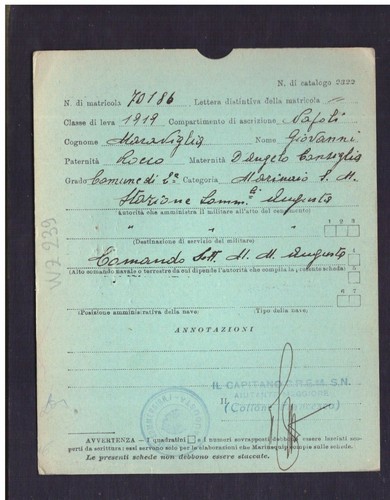 N. di catalogo 2322
N. di matricola 70186 Lettera distintiva della matricola "
Classe di leva 1919 Compartimento di ascrizione Napoli
Cognome Maraviglia Nome Giovanni
Paternità Rocco Maternità D'Angelo Consiglia
Grado Comune di 2ª Categoria Marinaio S. M.
Stazione Somm.li Augusta
(Autorità che amministra il militare all'atto del censimento)
" " " 1 2 3
(Destinazione di servizio del militare)
Comando Sett. M. M. Augusta
(Alto comando navale o terrestre da cui dipende l'autorità che compila la presente scheda)
(Posizione amministrativa della nave) (Tipo della nave)
ANNOTAZIONI
W7 239
IL CAPITANO
AIUTANTE MAGGIORE
IL
AVVERTENZA - I quadratini e i numeri sovrapposti debbono essere lasciati
sporti da scritture: essi servono solo per le elaborazioni che Marinequip compie sulle schede.
Le presenti schede non debbono essere staccate.